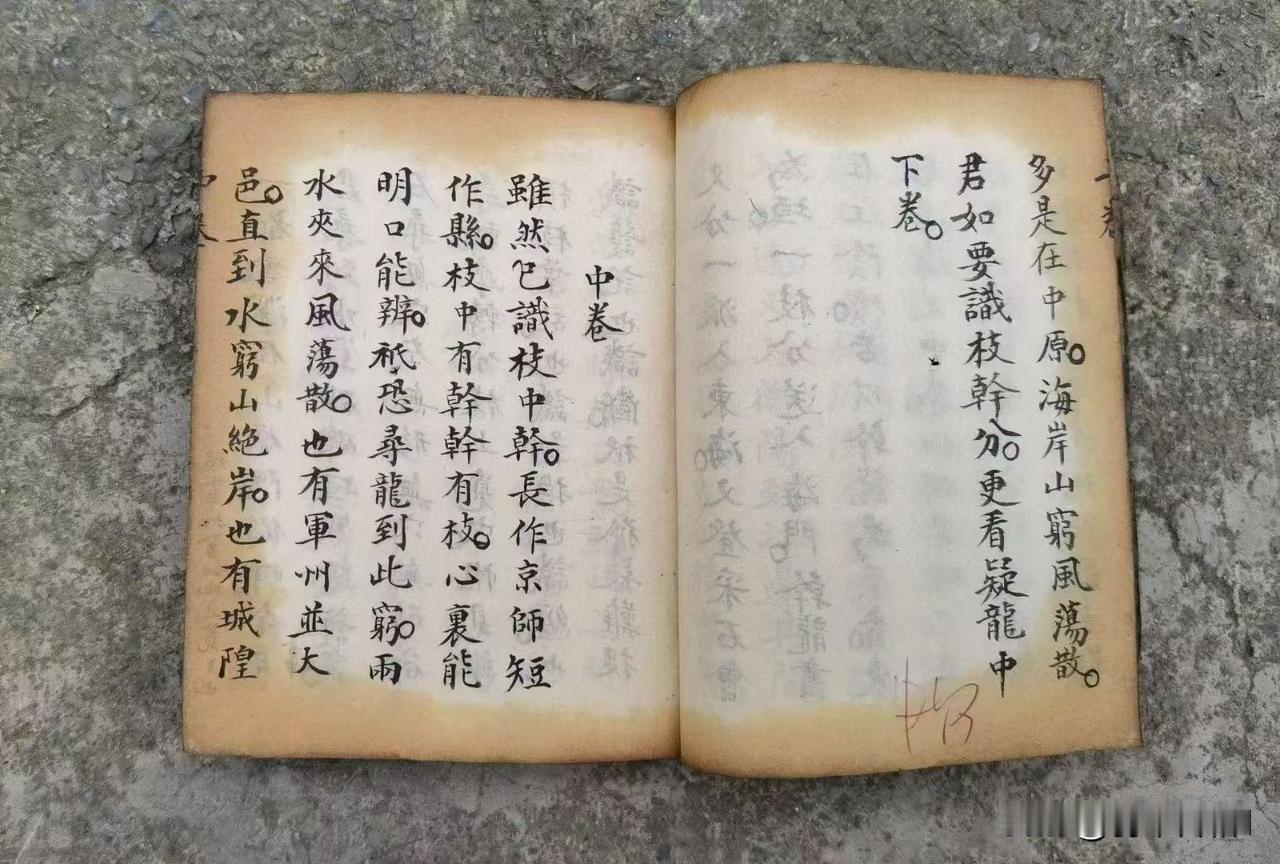 多是在中原。海岸山窮風蕩散。
君如要識枝幹分。更看疑龍中
下卷。
中卷
雖然已識枝中幹。長作京師短
作縣。枝中有幹幹有枝。心裏能
明口能辨。祇恐尋龍到此窮。兩
水夾來風蕩散。也有軍州並大
邑。直到水窮山絶岸。也有城隍